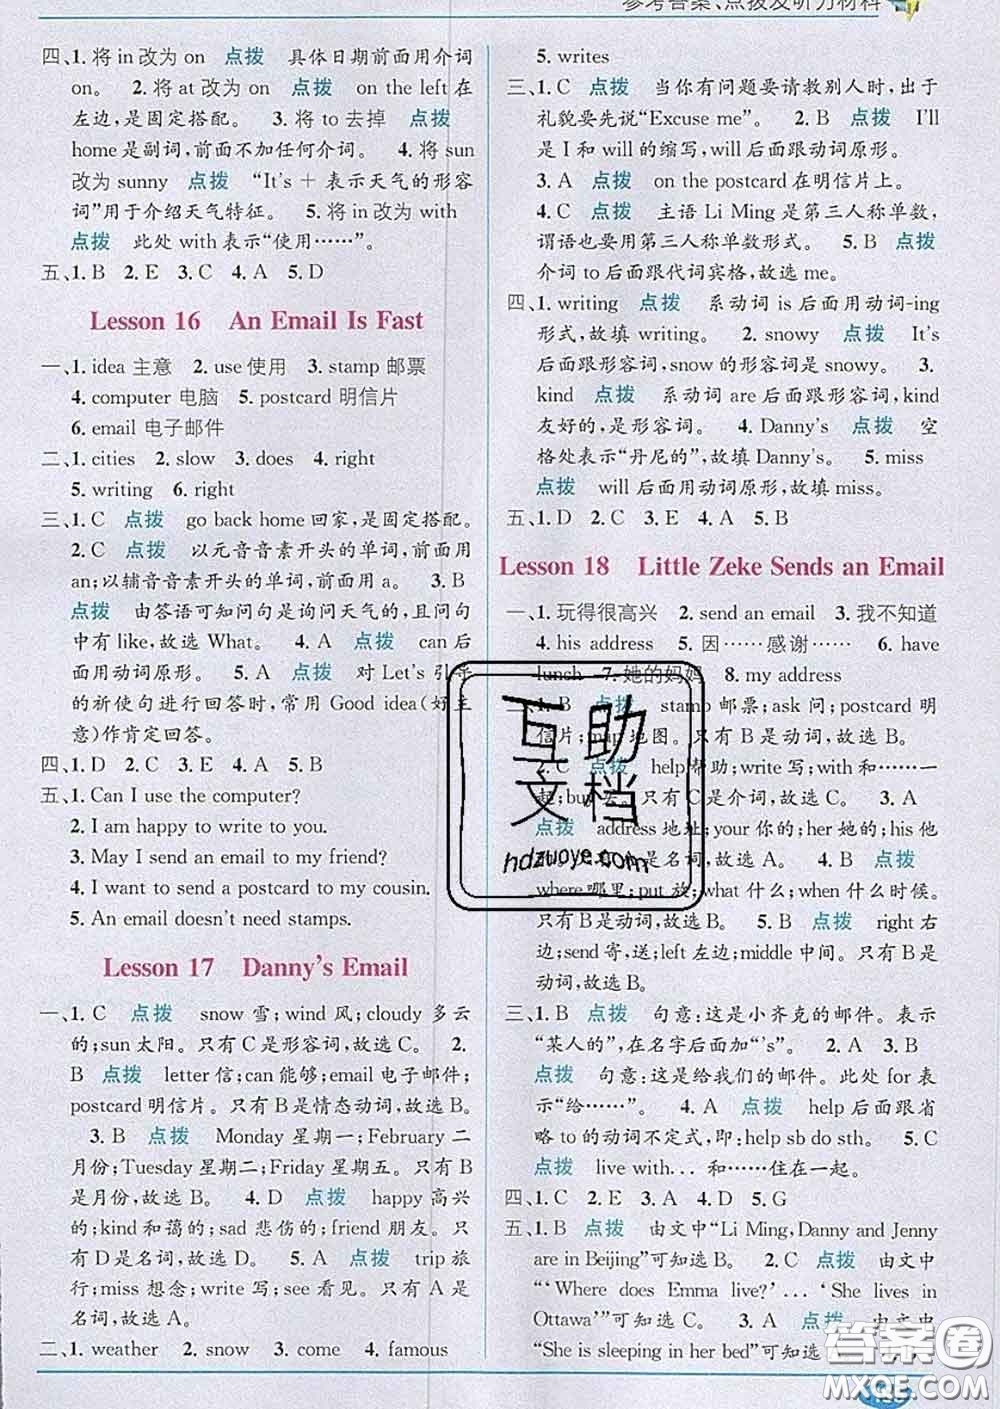 参考答案、点拨及听力材料
四、1. 将 in 改为 on 点拨 具体日期前面用介词
on。 2. 将 at 改为 on 点拨 on the left 在
左边,是固定搭配。 3. 将 to 去掉 点拨
home 是副词,前面不加任何介词。 4. 将 sun
改为 sunny 点拨 “It's ＋ 表示天气的形容
词”用于介绍天气特征。 5. 将 in 改为 with
点拨 此处 with 表示“使用……”。
五、1. B 2. E 3. C 4. A 5. D
Lesson 16 An Email Is Fast
一、1. idea 主意 2. use 使用 3. stamp 邮票
4. computer 电脑 5. postcard 明信片
6. email 电子邮件
二、1. cities 2. slow 3. does 4. right
5. writing 6. right
三、1. C 点拨 go back home 回家,是固定搭配。
2. C 点拨 以元音音素开头的单词,前面用
an;以辅音音素开头的单词,前面用 a。 3. B
点拨 由答语可知问句是询问天气的,且问句
中有 like,故选 What。 4. A 点拨 can 后
面用动词原形。 5. A 点拨 对 Let's 引导
的祈使句进行回答时,常用 Good idea(好主
意)作肯定回答。
四、1. D 2. C 3. E 4. A 5. B
五、1. Can I use the computer?
2. I am happy to write to you.
3. May I send an email to my friend?
4. I want to send a postcard to my cousin.
5. An email doesn't need stamps.
Lesson 17 Danny's Email
一、1. C 点拨 snow 雪;wind 风;cloudy 多云
的;sun 太阳。只有 C 是形容词,故选 C。 2.
B 点拨 letter 信;can 能够;email 电子邮件;
postcard 明信片。只有 B 是情态动词,故选 B。
3. B 点拨 Monday 星期一;February 二
月份;Tuesday 星期二;Friday 星期五。只有 B
是月份,故选 B。 4. D 点拨 happy 高兴
的;kind 和蔼的;sad 悲伤的;friend 朋友。只
有 D 是名词,故选 D。 5. A 点拨 trip 旅
行;miss 想念;write 写;see 看见。只有 A 是
名词,故选 A。
二、1. weather 2. snow 3. come 4. famous
5. writes
三、1. C 点拨 当你有问题要请教别人时,出于
礼貌要先说“Excuse me”。 2. B 点拨 I'll
是 I 和 will 的缩写,will 后面跟动词原形。
3. A 点拨 on the postcard 在明信片上。
4. C 点拨 主语 Li Ming 是第三人称单数,
谓语也要用第三人称单数形式。 5. B 点拨
介词 to 后面跟代词宾格,故选 me。
四、1. writing 点拨 系动词 is 后面用动词-ing
形式,故填 writing。 2. snowy 点拨 It's
后面跟形容词,snow 的形容词是 snowy。 3.
kind 点拨 系动词 are 后面跟形容词,kind
友好的,是形容词。 4. Danny's 点拨 空
格处表示“丹尼的”,故填 Danny's。 5. miss
点拨 will 后面用动词原形,故填 miss。
五、1. D 2. C 3. E 4. A 5. B
Lesson 18 Little Zeke Sends an Email
一、1. 玩得很高兴 2. send an email 3. 我不知道
4. his address 5. 因……感谢…… 6. have
lunch 7. 她的妈妈 8. my address
1. B 点拨 stamp 邮票;ask 问;postcard 明
信片;map 地图。只有 B 是动词,故选 B。
2. C 点拨 help 帮助;write 写;with 和……一
起;buy 买。只有 C 是介词,故选 C。 3. A
点拨 address 地址;your 你的;her 她的;his 他
是名词,故选 A。 4. B 点拨
where 哪里;put 放;what 什么;when 什么时候。
只有 B 是动词,故选 B。 5. B 点拨 right 右
边;send 寄,送;left 左边;middle 中间。只有 B 是
动词,故选 B。
三、1. B 点拨 句意:这是小齐克的邮件。表示
“某人的”,在名字后面加“'s”。 2. A 3. B
点拨 句意:这是给我们的邮件。此处 for 表
示“给……”。 4. A 点拨 help 后面跟省
略 to 的动词不定式,即:help sb do sth。 5. C
点拨 live with... 和……住在一起。
四、1. C 2. E 3. A 4. D 5. G
五、1. B 点拨 由文中“Li Ming, Danny and Jenny
are in Beijing”可知选 B。 2. C 点拨 由文中
“‘Where does Emma live?’... ‘She lives in
Ottawa’”可知选 C。 3. A 点拨 由文中
“She is sleeping in her bed”可知选
互助
文档
hdzuoye.com
答案圈
MXQE.COM